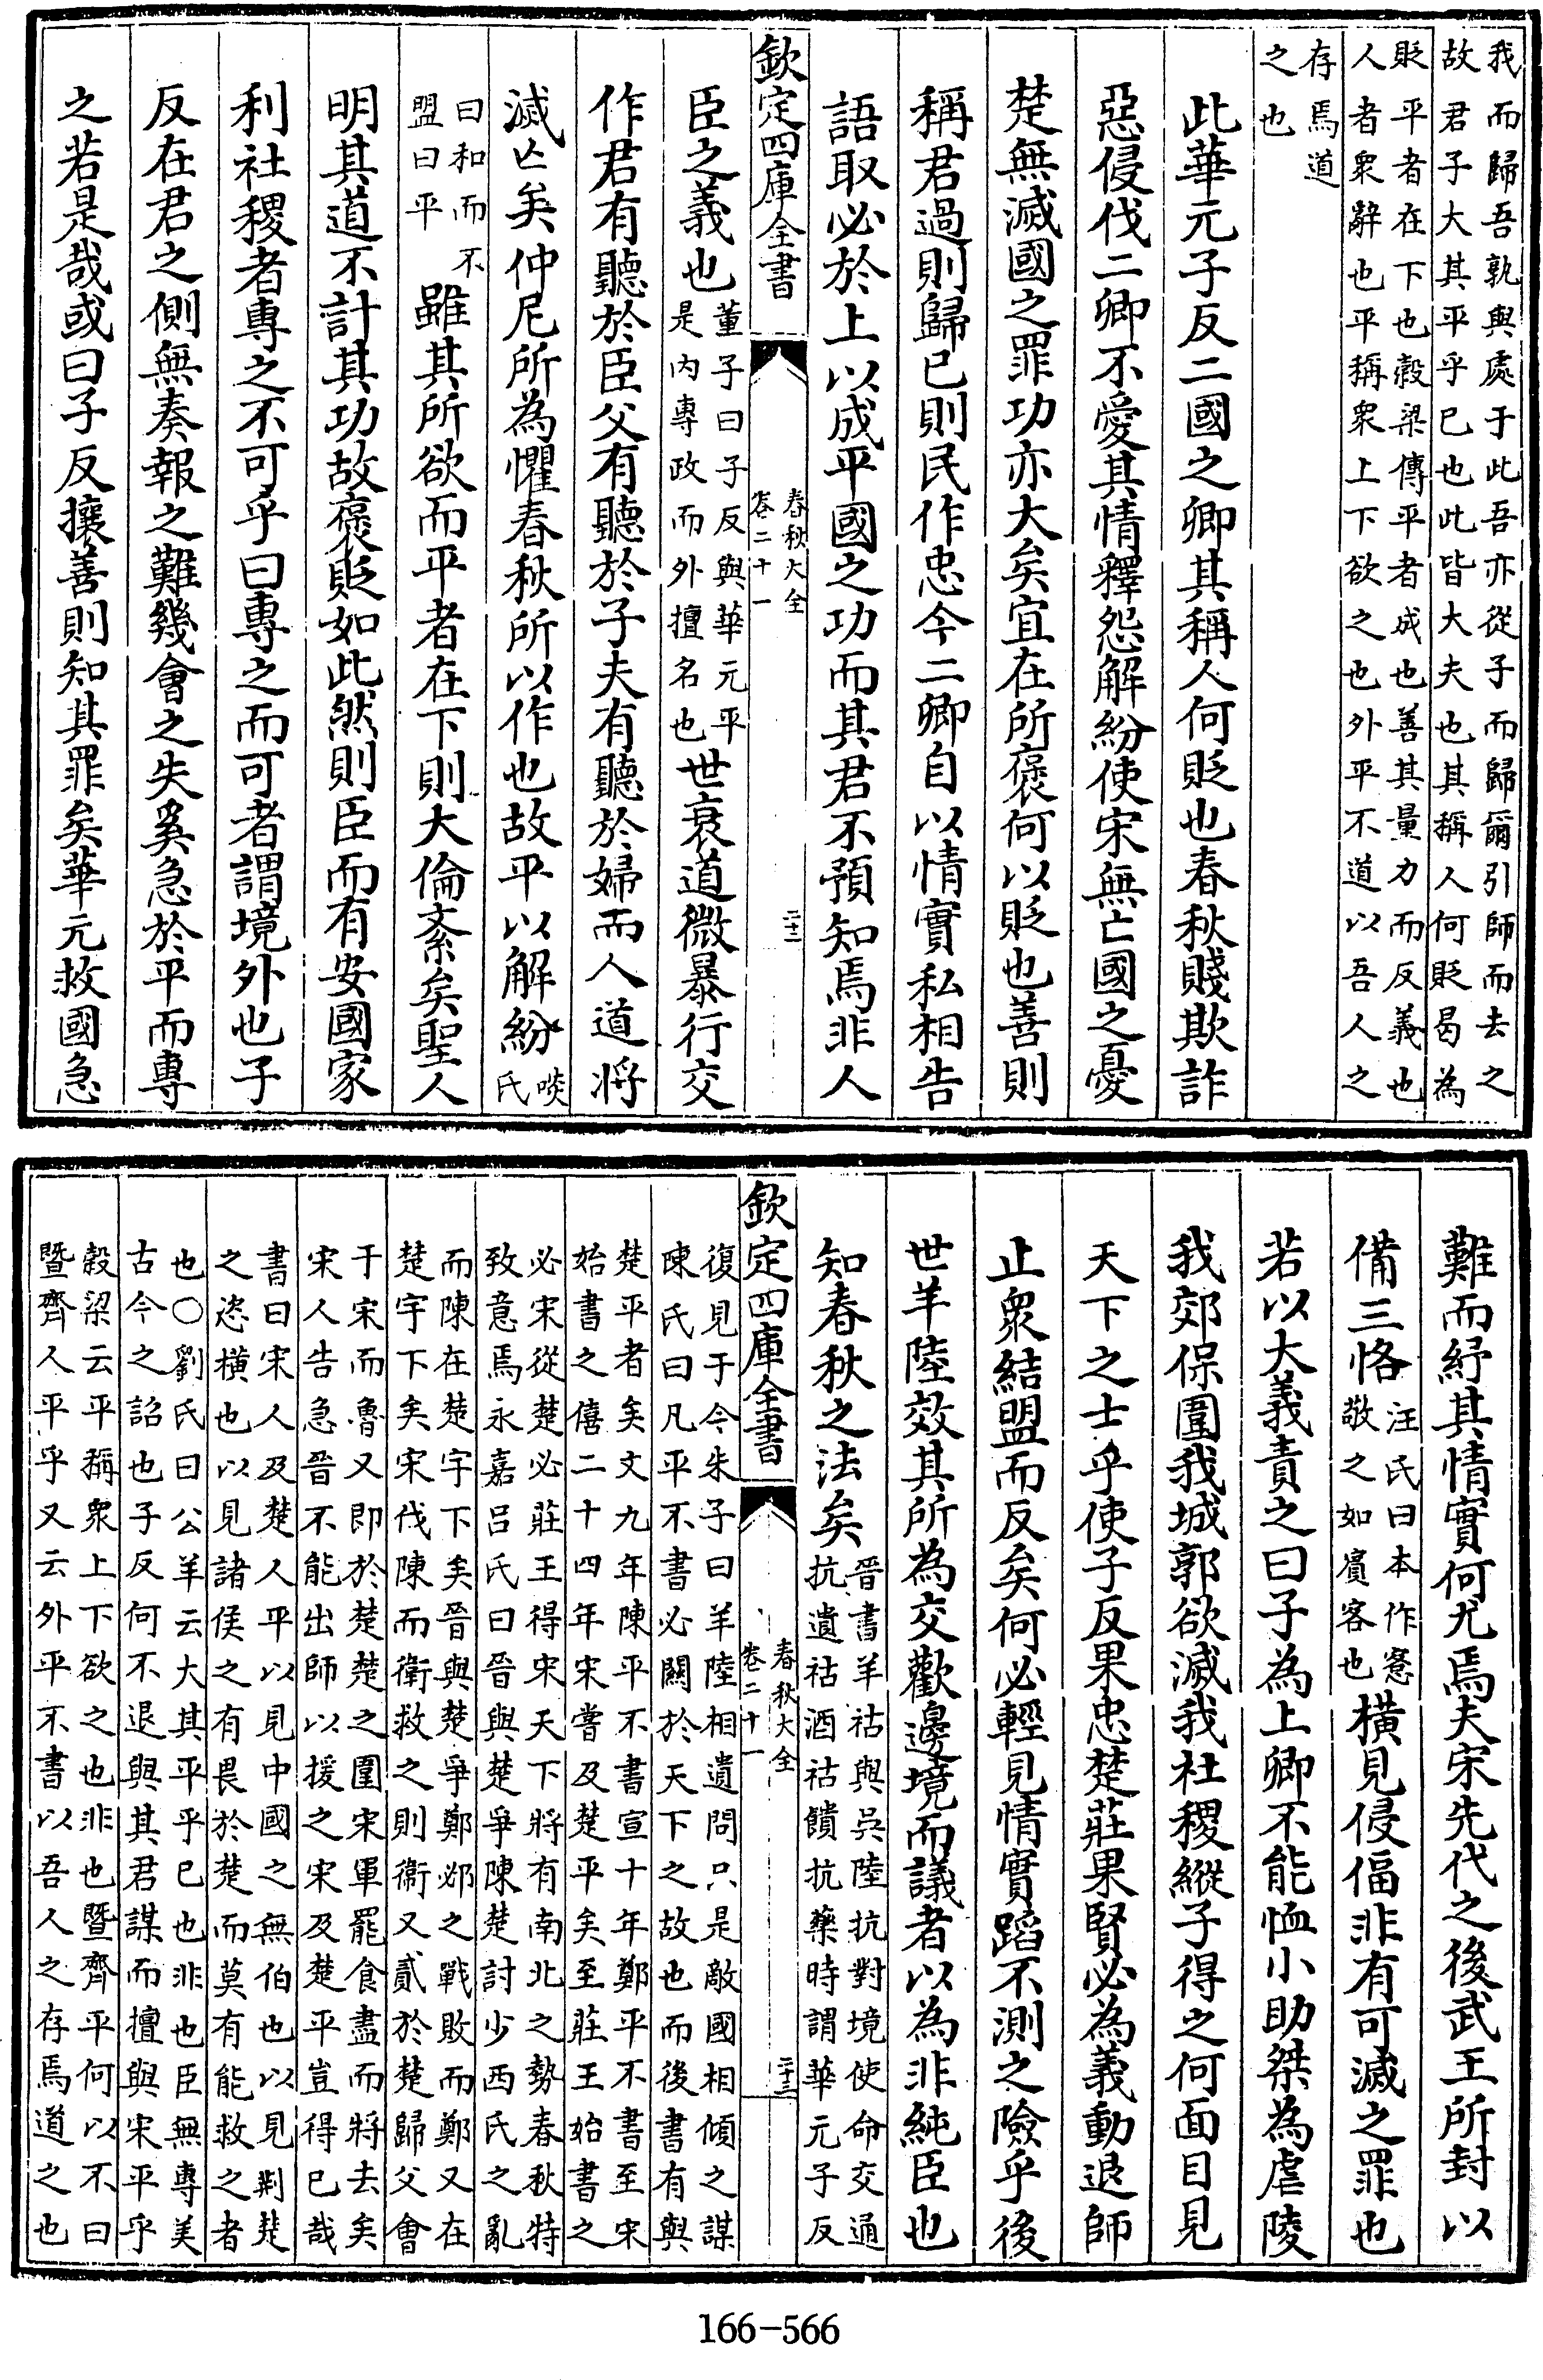 我而歸吾孰與處于此吾亦從子而歸爾引師而去之
故君子大其平乎已也此皆大夫也其稱人何貶曷為
貶平者在下也穀梁傳平者成也善其量力而反義也
人者衆辭也平稱衆上下欲之也外平不道以吾人之
存焉道
之也
此華元子反二國之卿其稱人何貶也春秋賤欺詐
惡侵伐二卿不愛其情釋怨解紛使宋無亡國之憂
楚無滅國之罪功亦大矣宜在所褒何以貶也善則
稱君過則歸已則民作忠今二卿自以情實私相告
語取必於上以成平國之功而其君不預知焉非人
欽定四庫全書
春秋大全
卷二十一
二十二
臣之義也
董子曰子反與華元平
是内專政而外擅名也
世衰道微暴行交
作君有聽於臣父有聽於子夫有聽於婦而人道將
滅亡矣仲尼所為懼春秋所以作也故平以解紛
啖
氏
曰和而不
盟曰平
雖其所欲而平者在下則大倫紊矣聖人
明其道不計其功故褒貶如此然則臣而有安國家
利社稷者專之不可乎曰專之而可者謂境外也子
反在君之側無奏報之難幾會之失奚急於平而專
之若是哉或曰子反攘善則知其罪矣華元救國急
難而紓其情實何尤焉夫宋先代之後武王所封以
備三恪
汪氏曰本作愙
敬之如賓客也
横見侵偪非有可滅之罪也
若以大義責之曰子為上卿不能恤小助桀為虐陵
我郊保圍我城郭欲滅我社稷縱子得之何面目見
天下之士乎使子反果忠楚莊果賢必為義動退師
止衆結盟而反矣何必輕見情實蹈不測之險乎後
世羊陸效其所為交歡邊境而議者以為非純臣也
知春秋之法矣
晉書羊祜與吳陸抗對境使命交通
抗遺祜酒祜饋抗藥時謂華元子反
欽定四庫全書
春秋大全
卷二十一
二十三
復見于今朱子曰羊陸相遺問只是敵國相傾之謀
陳氏曰凡平不書必關於天下之故也而後書有與
楚平者矣文九年陳平不書宣十年鄭平不書至宋
始書之僖二十四年宋嘗及楚平矣至莊王始書之
必宋從楚必莊王得宋天下將有南北之勢春秋特
致意焉永嘉呂氏曰晉與楚爭陳楚討少西氏之亂
而陳在楚宇下矣晉與楚爭鄭邲之戰敗而鄭又在
楚宇下矣宋伐陳而衛救之則衛又貳於楚歸父會
于宋而魯又即於楚楚之圍宋軍罷食盡而將去矣
宋人告急晉不能出師以援之宋及楚平豈得已哉
書曰宋人及楚人平以見中國之無伯也以見荆楚
之恣横也以見諸侯之有畏於楚而莫有能救之者
也○劉氏曰公羊云大其平乎已也非也臣無專美
古今之詔也子反何不退與其君謀而擅與宋平乎
穀梁云平稱衆上下欲之也非也暨齊平何以不曰
暨齊人平乎又云外平不書以吾人之存焉道之也
166-566